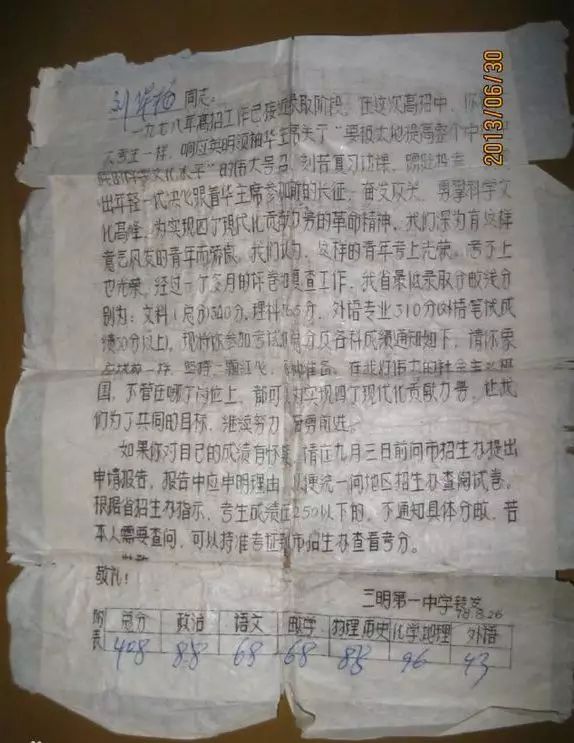 2013/06/30
刘 同志:
一九七八年高招工作已接近录取阶段。在这次高招中,你
考生一样,响应英明领袖华主席关于"要极大地提高整个中
民族的科学文化水平"的伟大号召,刻苦复习功课,踊跃报考
出年轻一代决心跟着华主席参加新的长征,奋发攻关,勇攀科学文
化高峰,为实现四个现代化贡献力量的革命精神。我们深为有这样
意气风发的青年而骄傲。我们认为,这样的青年考上光荣,考不上
也光荣。经过一个多月的评卷和复查工作,我省最低录取分数线分
别为:文科(总分)340分,理科 分,外语专业310分(外语笔试成
绩50分以上)。现将你参加考试的总分及各科成绩通知如下,请你象
一样,坚持一颗红心, 准备。在我们伟大的社会主义祖
国,不管在哪个岗位上,都可 为实现四个现代化贡献力量,让我
们为了共同的目标,继续努力 奋勇前进。
如果你对自己的成绩有怀疑,请在九月三日前向市招生办提出
申请报告,报告中应申明理由 以便统一向地区招生办查阅试卷。
根据省招生办指示,考生成绩在250以下的,不通知具体分数,若
本人需要查问,可以持准考证到市招生办查看考分。
敬礼!
三明第一中学转发
78.8.26
附表 总分 政治 语文 数学 物理历史 化学地理 外语
408 88 68 68 88 96 43